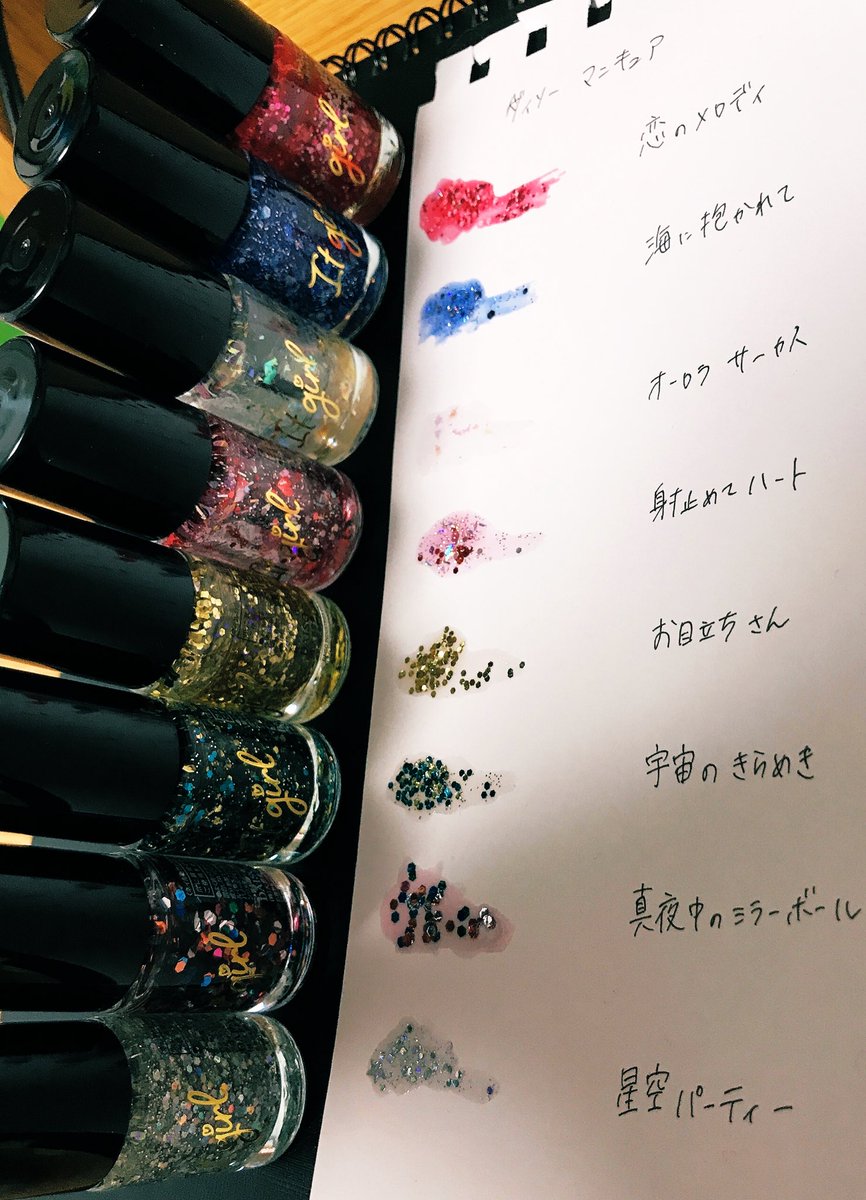 ダイソー マニキュア
恋のメロディ
海に抱かれて
オーロラ サーカス
射止めてハート
お目立ちさん
宇宙のきらめき
真夜中のミラーボール
星空パーティー
girl
It gi
It girl
girl
girl
girl
girl